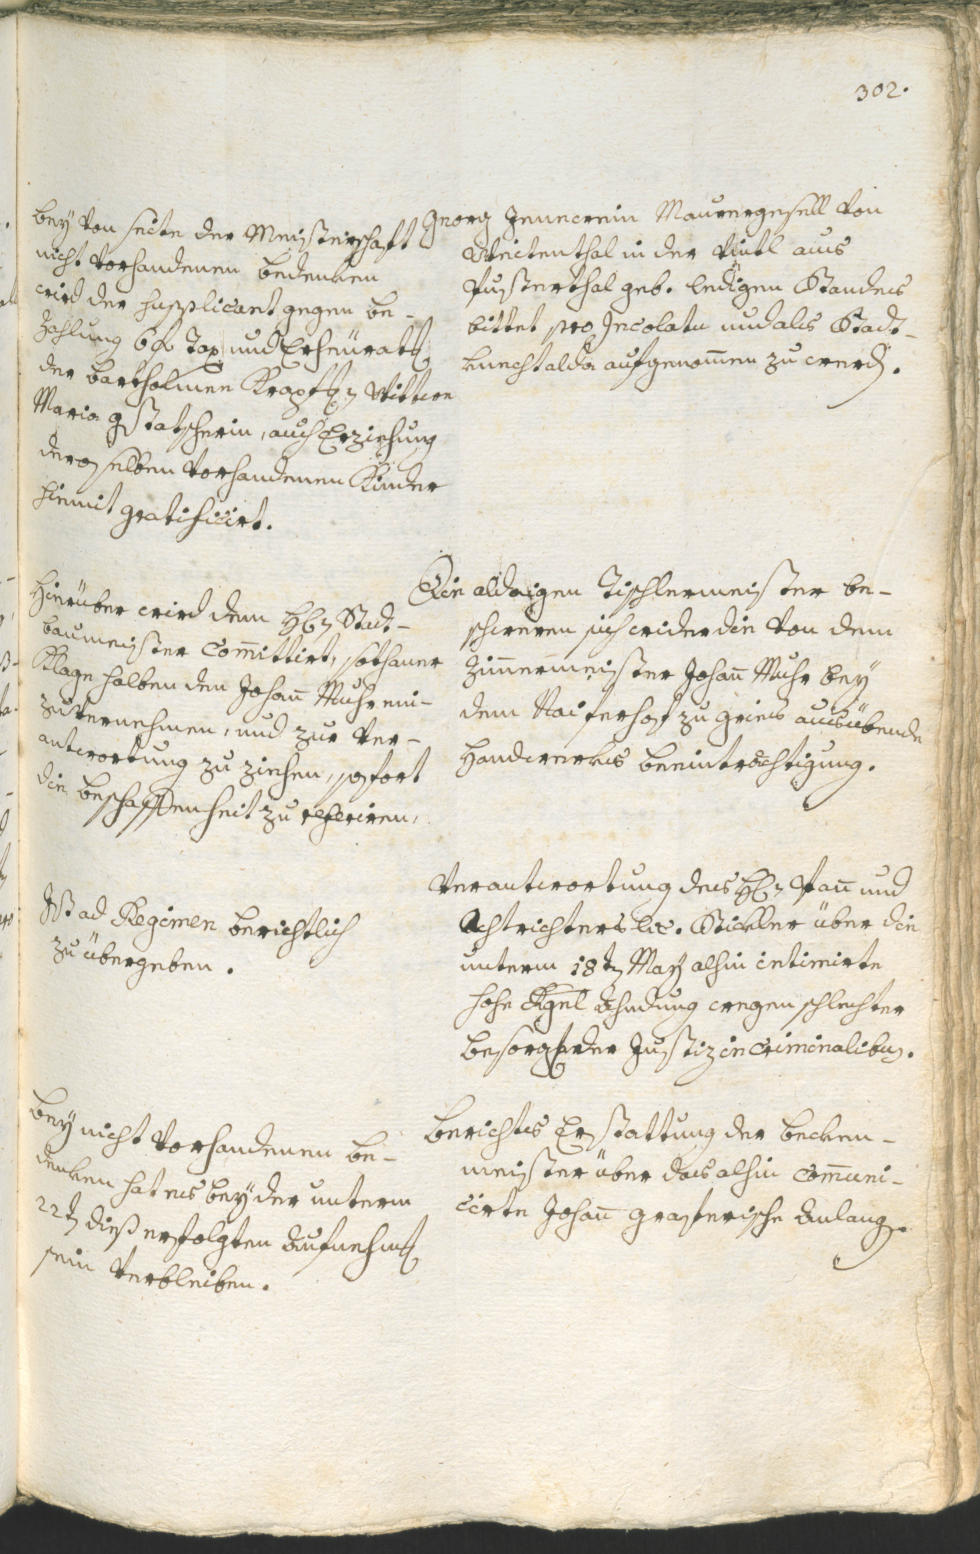 302.
bey von seite der Meisterschaft
nicht vorhandenen bedenken
wird der supplicant gegen be-
zahlung 6 f Tax, und Erheürath
der Bartholmee Krapf Wittwe
Maria gstatscherin, auch Erziehung
deroselben vorhandenen Kinder
hiemit gratificirt.
Georg Maurergesell von
Weitenthal in der Vintl aus
Pusterthal geb. ledigen Standes
bittet pro Incolatu und als Stadt-
knecht alda aufgenom̄en zu werdē.
Hierüber wird dem H: Stadt-
baumeister com̄ittirt, sothaner
Klage halben den Johan̄ Muhr ein-
zuvernehmen, und zur ver-
antwortung zu ziehen, sofort
die beschaffenheit zu referiren,
Die aldaigen Tischlermeister be-
schweren sich wider die von dem
Zim̄ermeister Johan̄ Muhr bey
dem Raiferhof zu gries ausübende
Handwerks beeinträchtigung.
Ist ad Regimen berichtlich
zu übergeben.
Verantwortung des H: Pan̄ und
Achtrichters lic. Stickler über die
unterm 18t May alhin intimirte
hohe Ahndung wegen schlechter
besorg der Justiz in Criminalibus.
bey nicht vorhandenen be-
denken hat es bey der unterm
22t dieß erfolgten Aufnehm
sein verbleiben.
berichts Erstattung der becken-
meister über das alhin com̄uni-
cirte Johan̄ graferische Anlang.